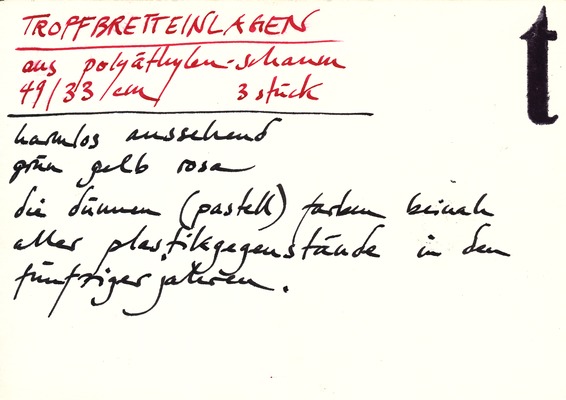 TROPFBRETTEINLAGEN
t
aus polyäthylen-schaum
49/33/cm 3 stück
harmlos aussehend
grün gelb rosa
die dünnen (pastell) farben beinah
aller plastikgegenstände in den
fünfziger jahren.